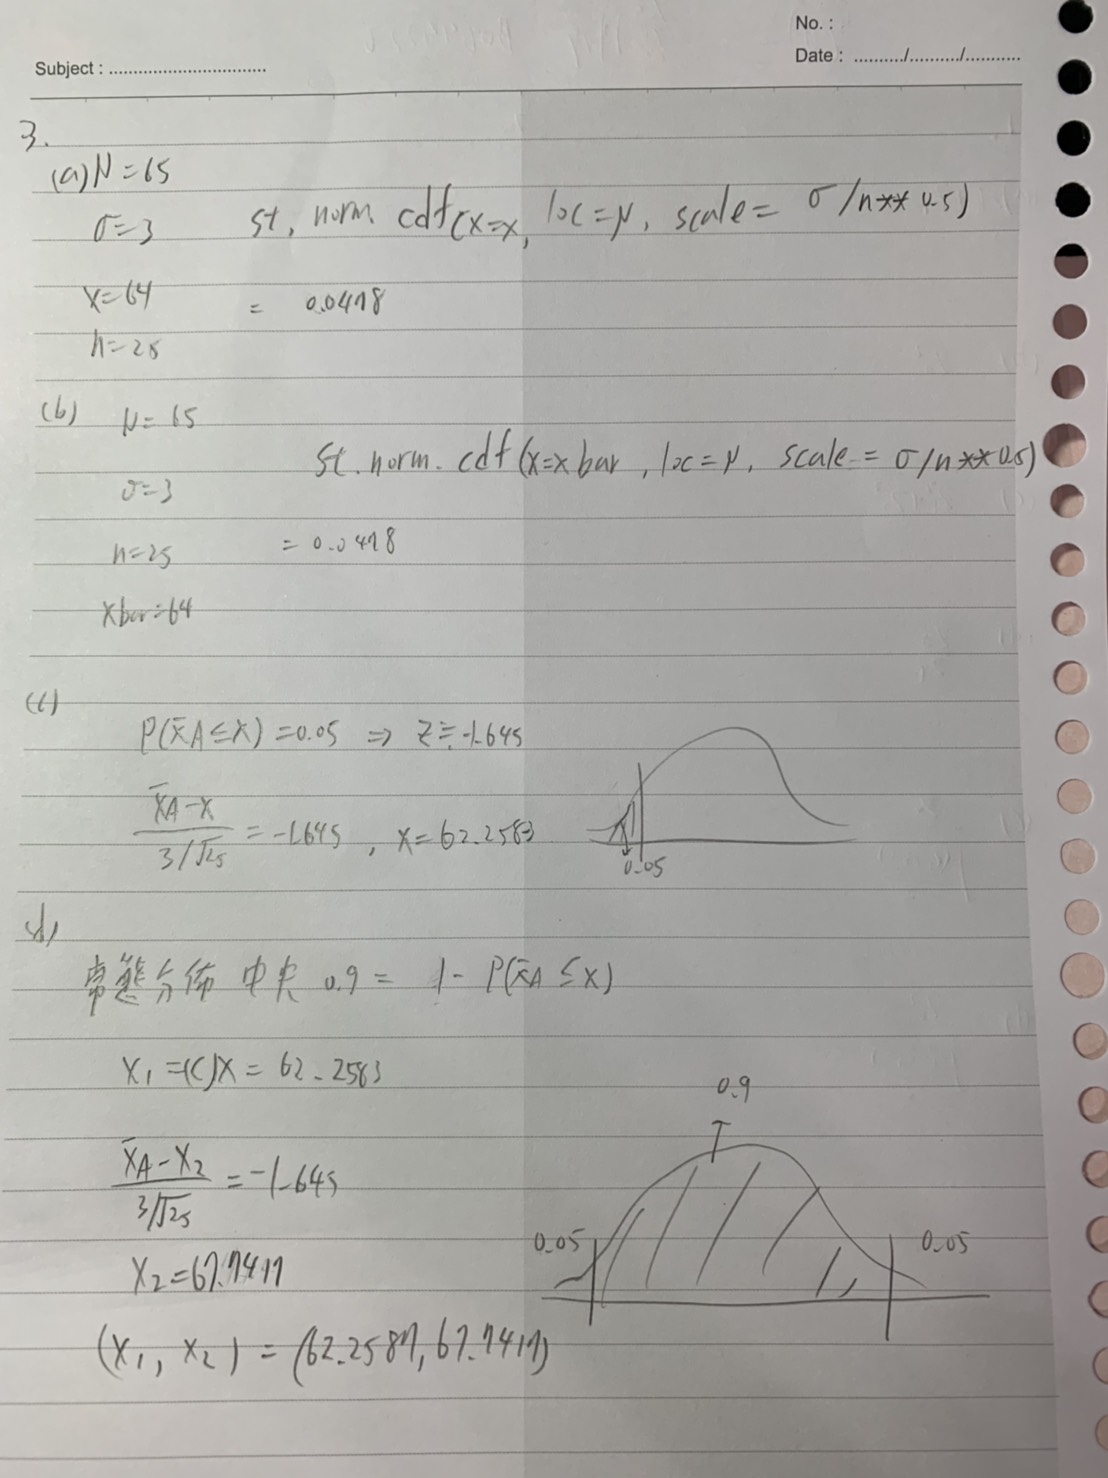 No. :
Subject : ................................ Date : ........../........../...........
3.
(a) μ = 65
σ = 3 st. norm. cdf(x=x, loc = μ, scale = σ/n**0.5)
x = 64 = 0.0478
n = 25
(b) μ = 65
st. norm. cdf (x=x bar, loc = μ, scale = σ/n**0.5)
σ = 3
n = 25 = 0.0478
x bar = 64
(c)
P(x̄A ≤ x) = 0.05 ⇒ z ≒ -1.645
(x̄A - x)/(3/√25) = -1.645, x = 62.2583
0.05
(d)
常態分佈 中央 0.9 = 1 - P(x̄A ≤ x)
x₁ = (c)x = 62.2583
0.9
(x̄A - x₂)/(3/√25) = -1.645
0.05 0.05
x₂ = 67.7417
(x₁, x₂) = (62.2587, 67.7417)